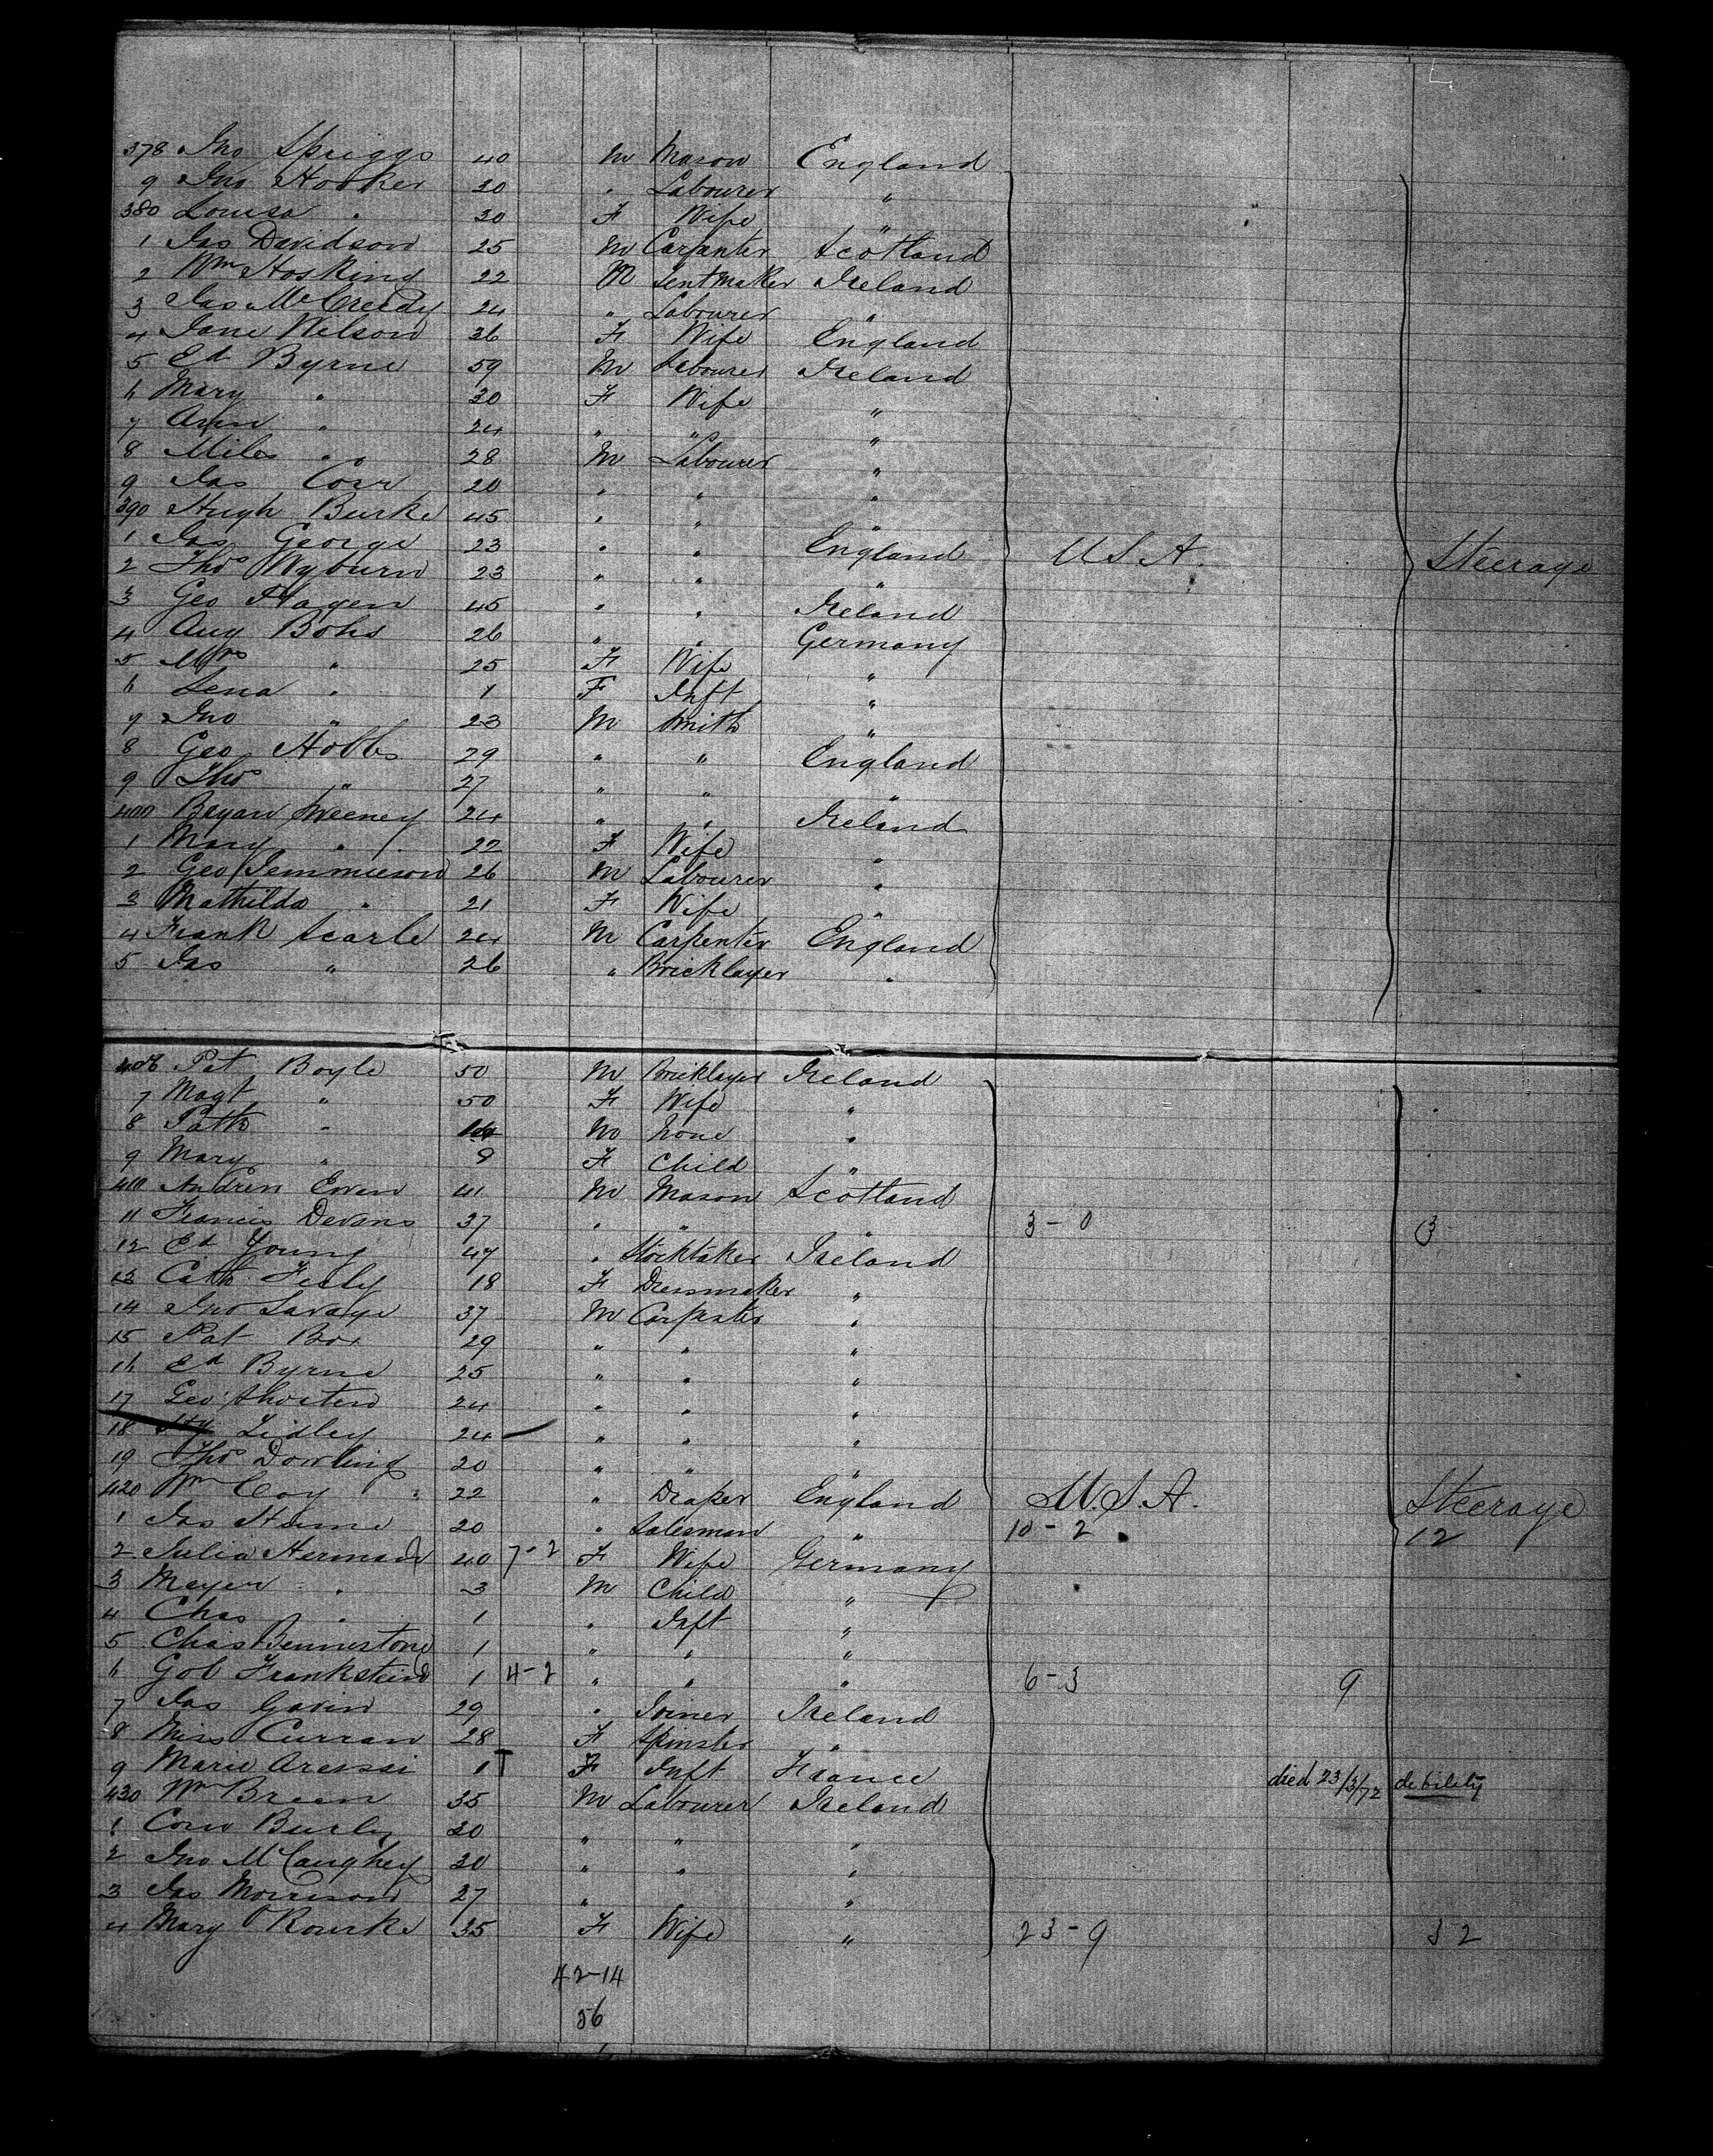 378 Jno Spriggs 40 M Mason England
9 Jno Hooker 20 " Labourer "
380 Louisa " 30 F Wife "
1 Jas Davidson 25 M Carpenter Scotland
2 Wm Hosking 22 M Tentmaker Ireland
3 Jas McCreedy 24 " Labourer "
4 Jane Wilson 36 F Wife England
5 Ed Byrne 59 M Labourer Ireland
6 Mary " 30 F Wife "
7 Ann " 24 " " "
8 Miles " 28 M Labourer "
9 Jas Corr 20 " " "
390 Hugh Burke 45 " " "
1 Jas George 23 " " England U S A. Steerage
2 Thos Wyburn 23 " " "
3 Geo Hagen 45 " " Ireland
4 Aug Bohs 26 " " Germany
5 Mrs " 25 F Wife "
6 Lena " 1 F Inft "
7 Jno " 23 M Smith "
8 Geo Hobbs 29 " " England
9 Thos " 27 " " "
400 Bryan Sweeney 24 " " Ireland
1 Mary " 22 F Wife "
2 Geo Jemmieson 26 M Labourer "
3 Mathilda " 21 F Wife "
4 Frank Searle 24 M Carpenter England
5 Jas " 26 " Bricklayer "
406 Pat Boyle 50 M Bricklayer Ireland
7 Magt " 50 F Wife "
8 Patk " M None "
9 Mary " 9 F Child "
410 Andrew Ewen 41 M Mason Scotland
11 Francis Devans 37 " " " 3-0 3
12 Ed Young 47 " Stocktaker Ireland
13 Cath Feely 18 F Dressmaker "
14 Jno Savage 37 M Carpenter "
15 Pat Box 29 " " "
16 Ed Byrne 25 " " "
17 Geo Shorten 24 " " "
18 Lidley 24 " " "
19 Thos Dowling 20 " " "
420 Wm Coy 22 " Draper England U.S.A. Steerage
1 Jas Hume 20 " Salesman " 10-2 12
2 Julia Herman 40 7-2 F Wife Germany
3 Meyer " 3 M Child "
4 Chas " 1 " Inft "
5 Chas Bennestone 1 " " "
6 Gob Frankstein 1 4-2 " " " 6-3 9
7 Jas Gavin 29 " Joiner Ireland
8 Miss Curran 28 F Spinster "
9 Marie Aressi 1 F Inft France died 23/3/72 debility
430 Wm Breen 35 M Labourer Ireland
1 Corn Burly 20 " " "
2 Jno McCaughey 30 " " "
3 Jas Morrison 27 " "
4 Mary O'Rourke 35 F Wife " 23-9 32
42-14
56